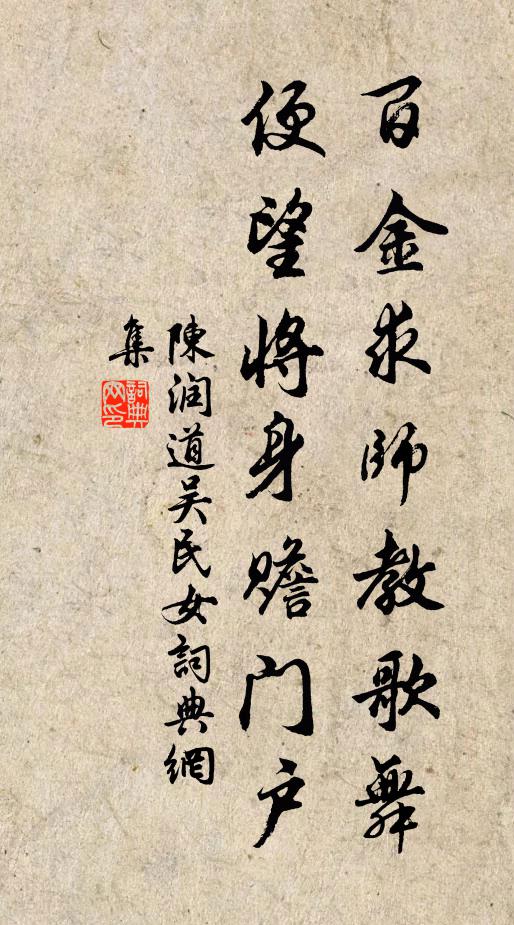 百金求師教歌舞
便望将身赡门户
陳润道吴民女詞典網
集
詞典
网印